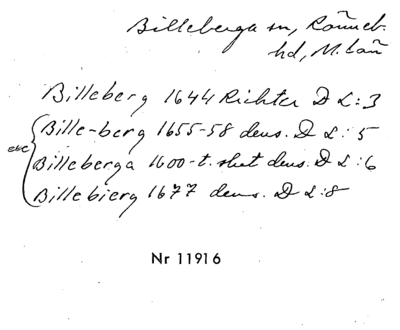 Billeberga sn, Rönneb.
hd, M. län
Billeberg 1644 Richter D L:3
Bille-berg 1655-58 dens. D L:5
Billeberga 1600-t. slut dens. D L:6
Billebierg 1677 dens. D L:8
Nr 11916